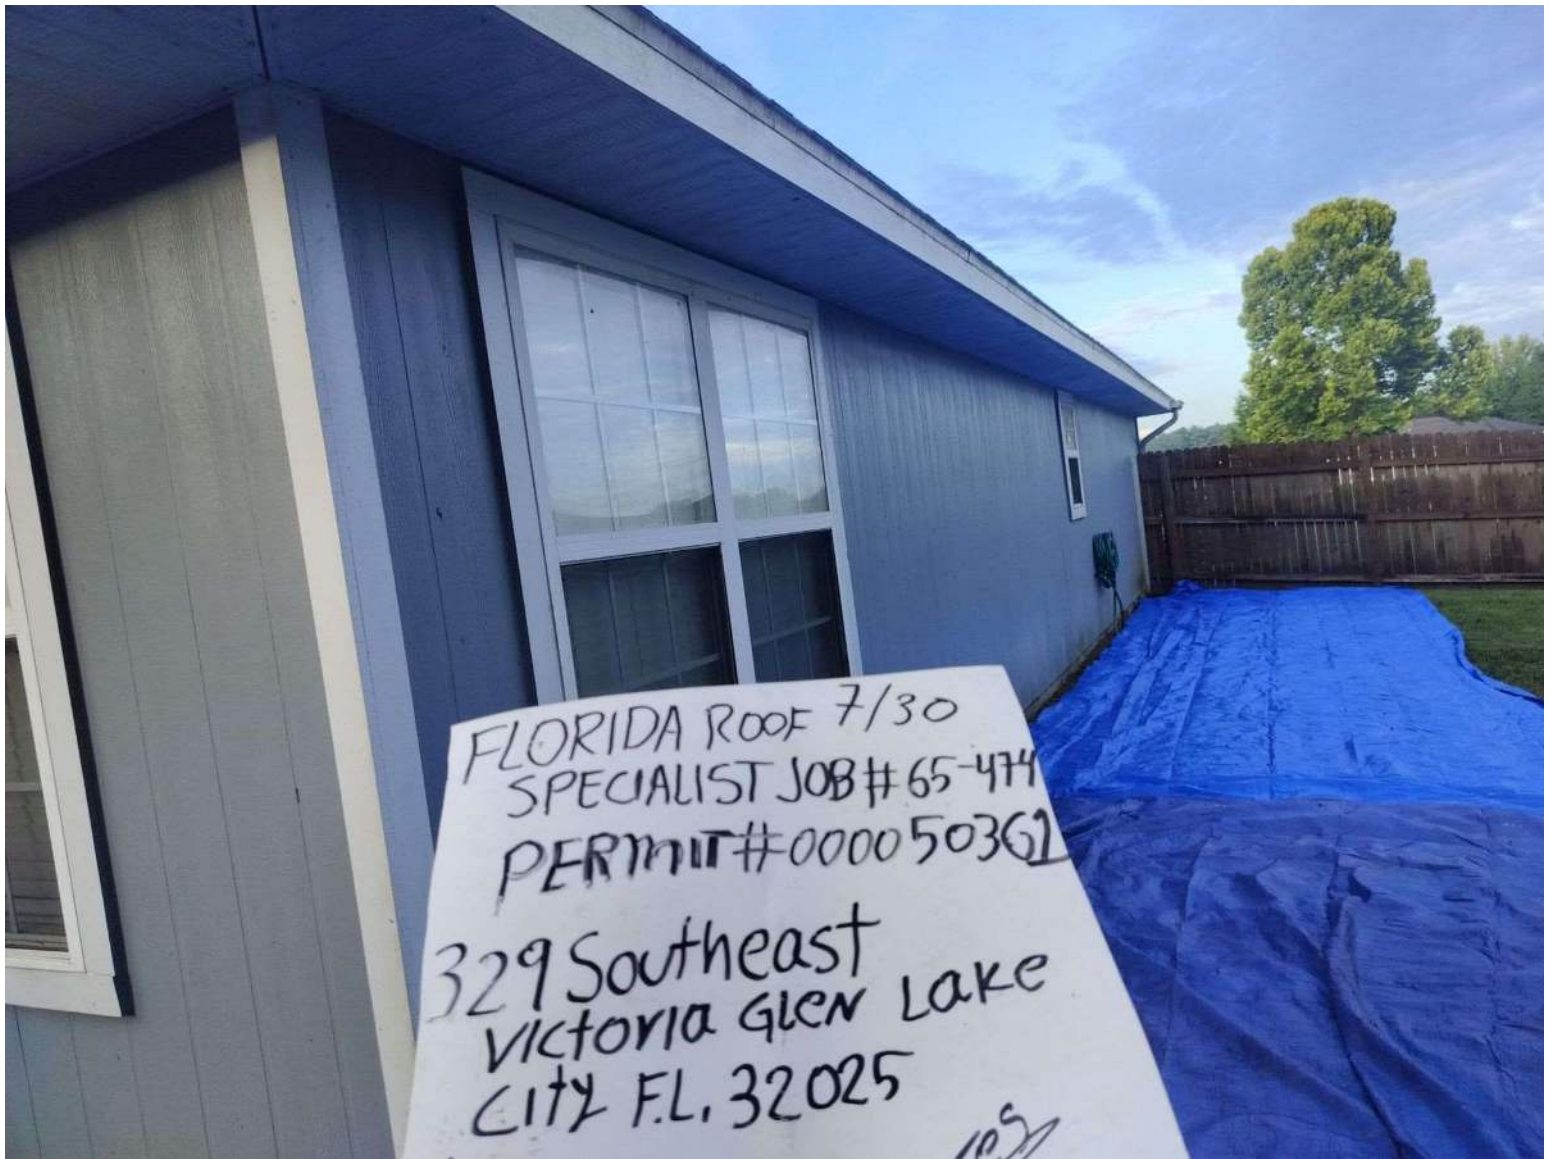 FLORIDA ROOF 7/30
SPECIALIST JOB # 65-474
PERMIT # 000050362
329 Southeast
Victoria Glen Lake
City F.L. 32025